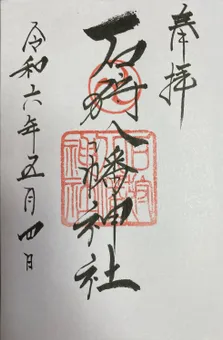 奉拝
石崎八幡神社
令和六年五月四日